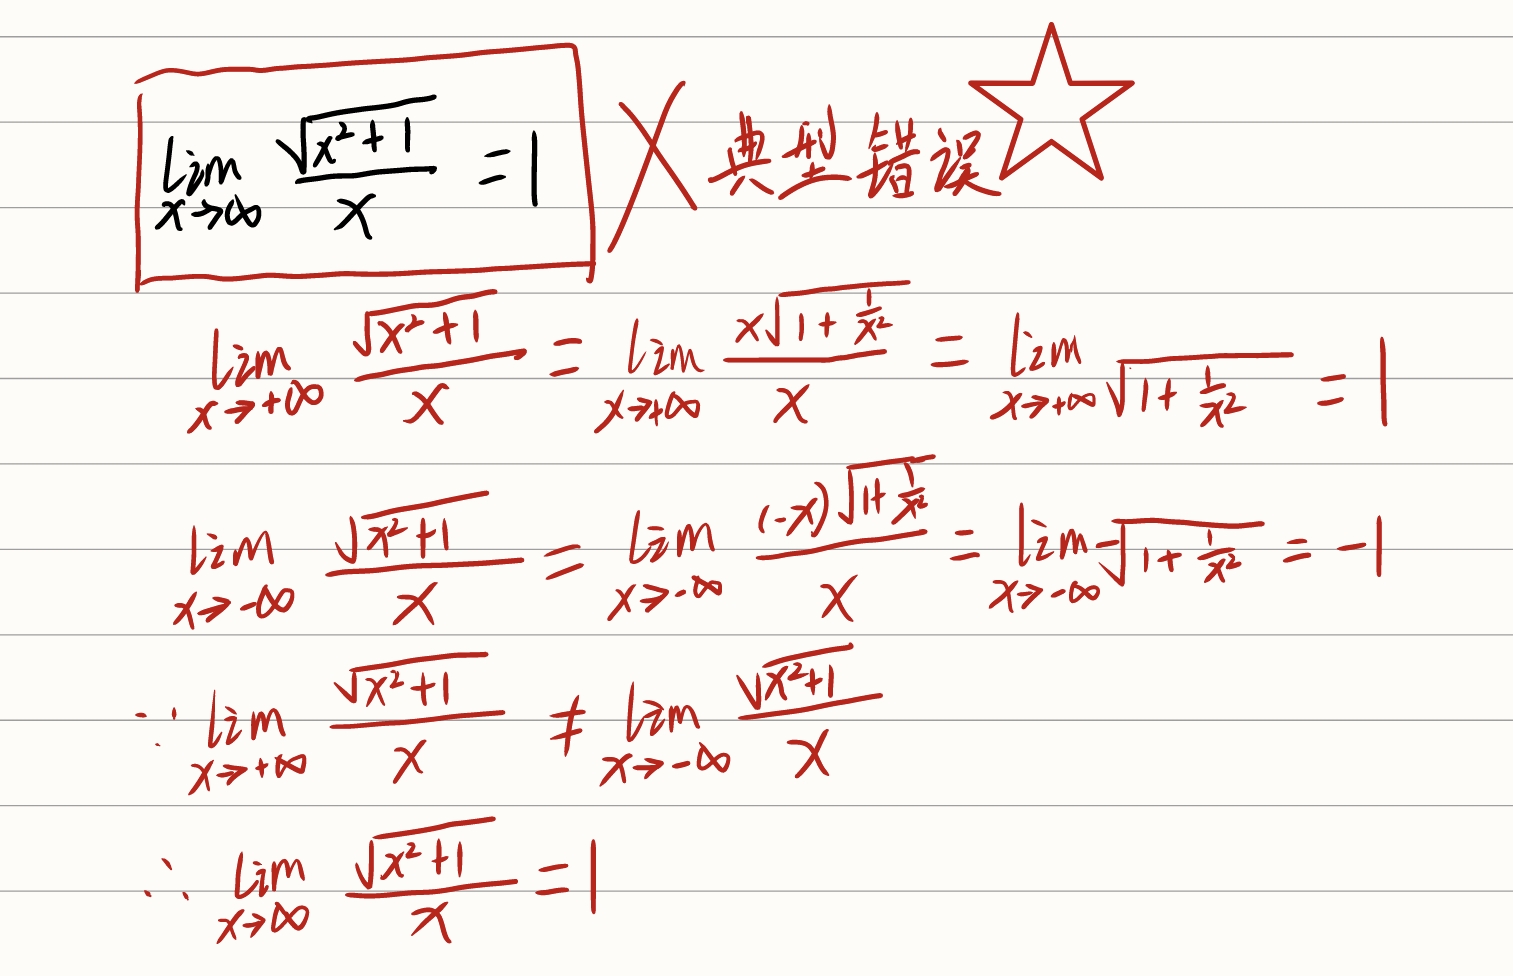 lim x→∞ √(x²+1)/x = 1 ✗ 典型错误
lim x→+∞ √(x²+1)/x = lim x→+∞ x√(1+1/x²)/x = lim x→+∞ √(1+1/x²) = 1
lim x→-∞ √(x²+1)/x = lim x→-∞ (-x)√(1+1/x²)/x = lim x→-∞ -√(1+1/x²) = -1
∵ lim x→+∞ √(x²+1)/x ≠ lim x→-∞ √(x²+1)/x
∴ lim x→∞ √(x²+1)/x = 1